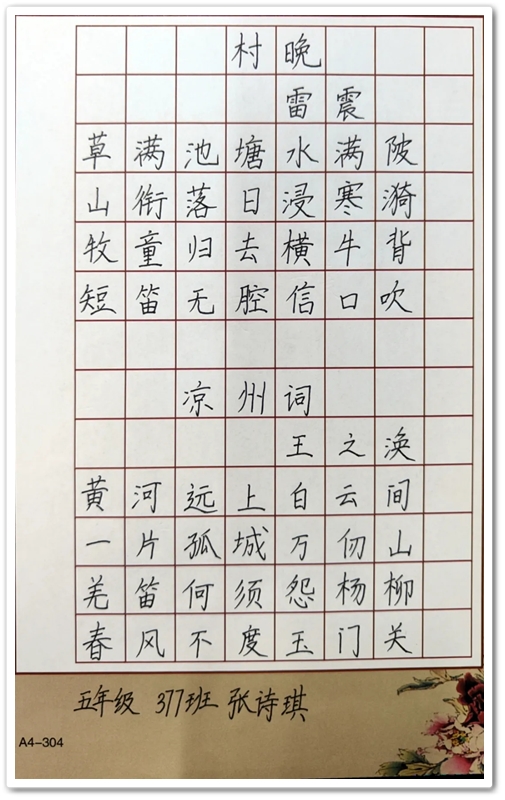 村晚
雷震
草满池塘水满陂
山衔落日浸寒漪
牧童归去横牛背
短笛无腔信口吹
凉州词
王之涣
黄河远上白云间
一片孤城万仞山
羌笛何须怨杨柳
春风不度玉门关
五年级 377班 张诗琪
A4-304